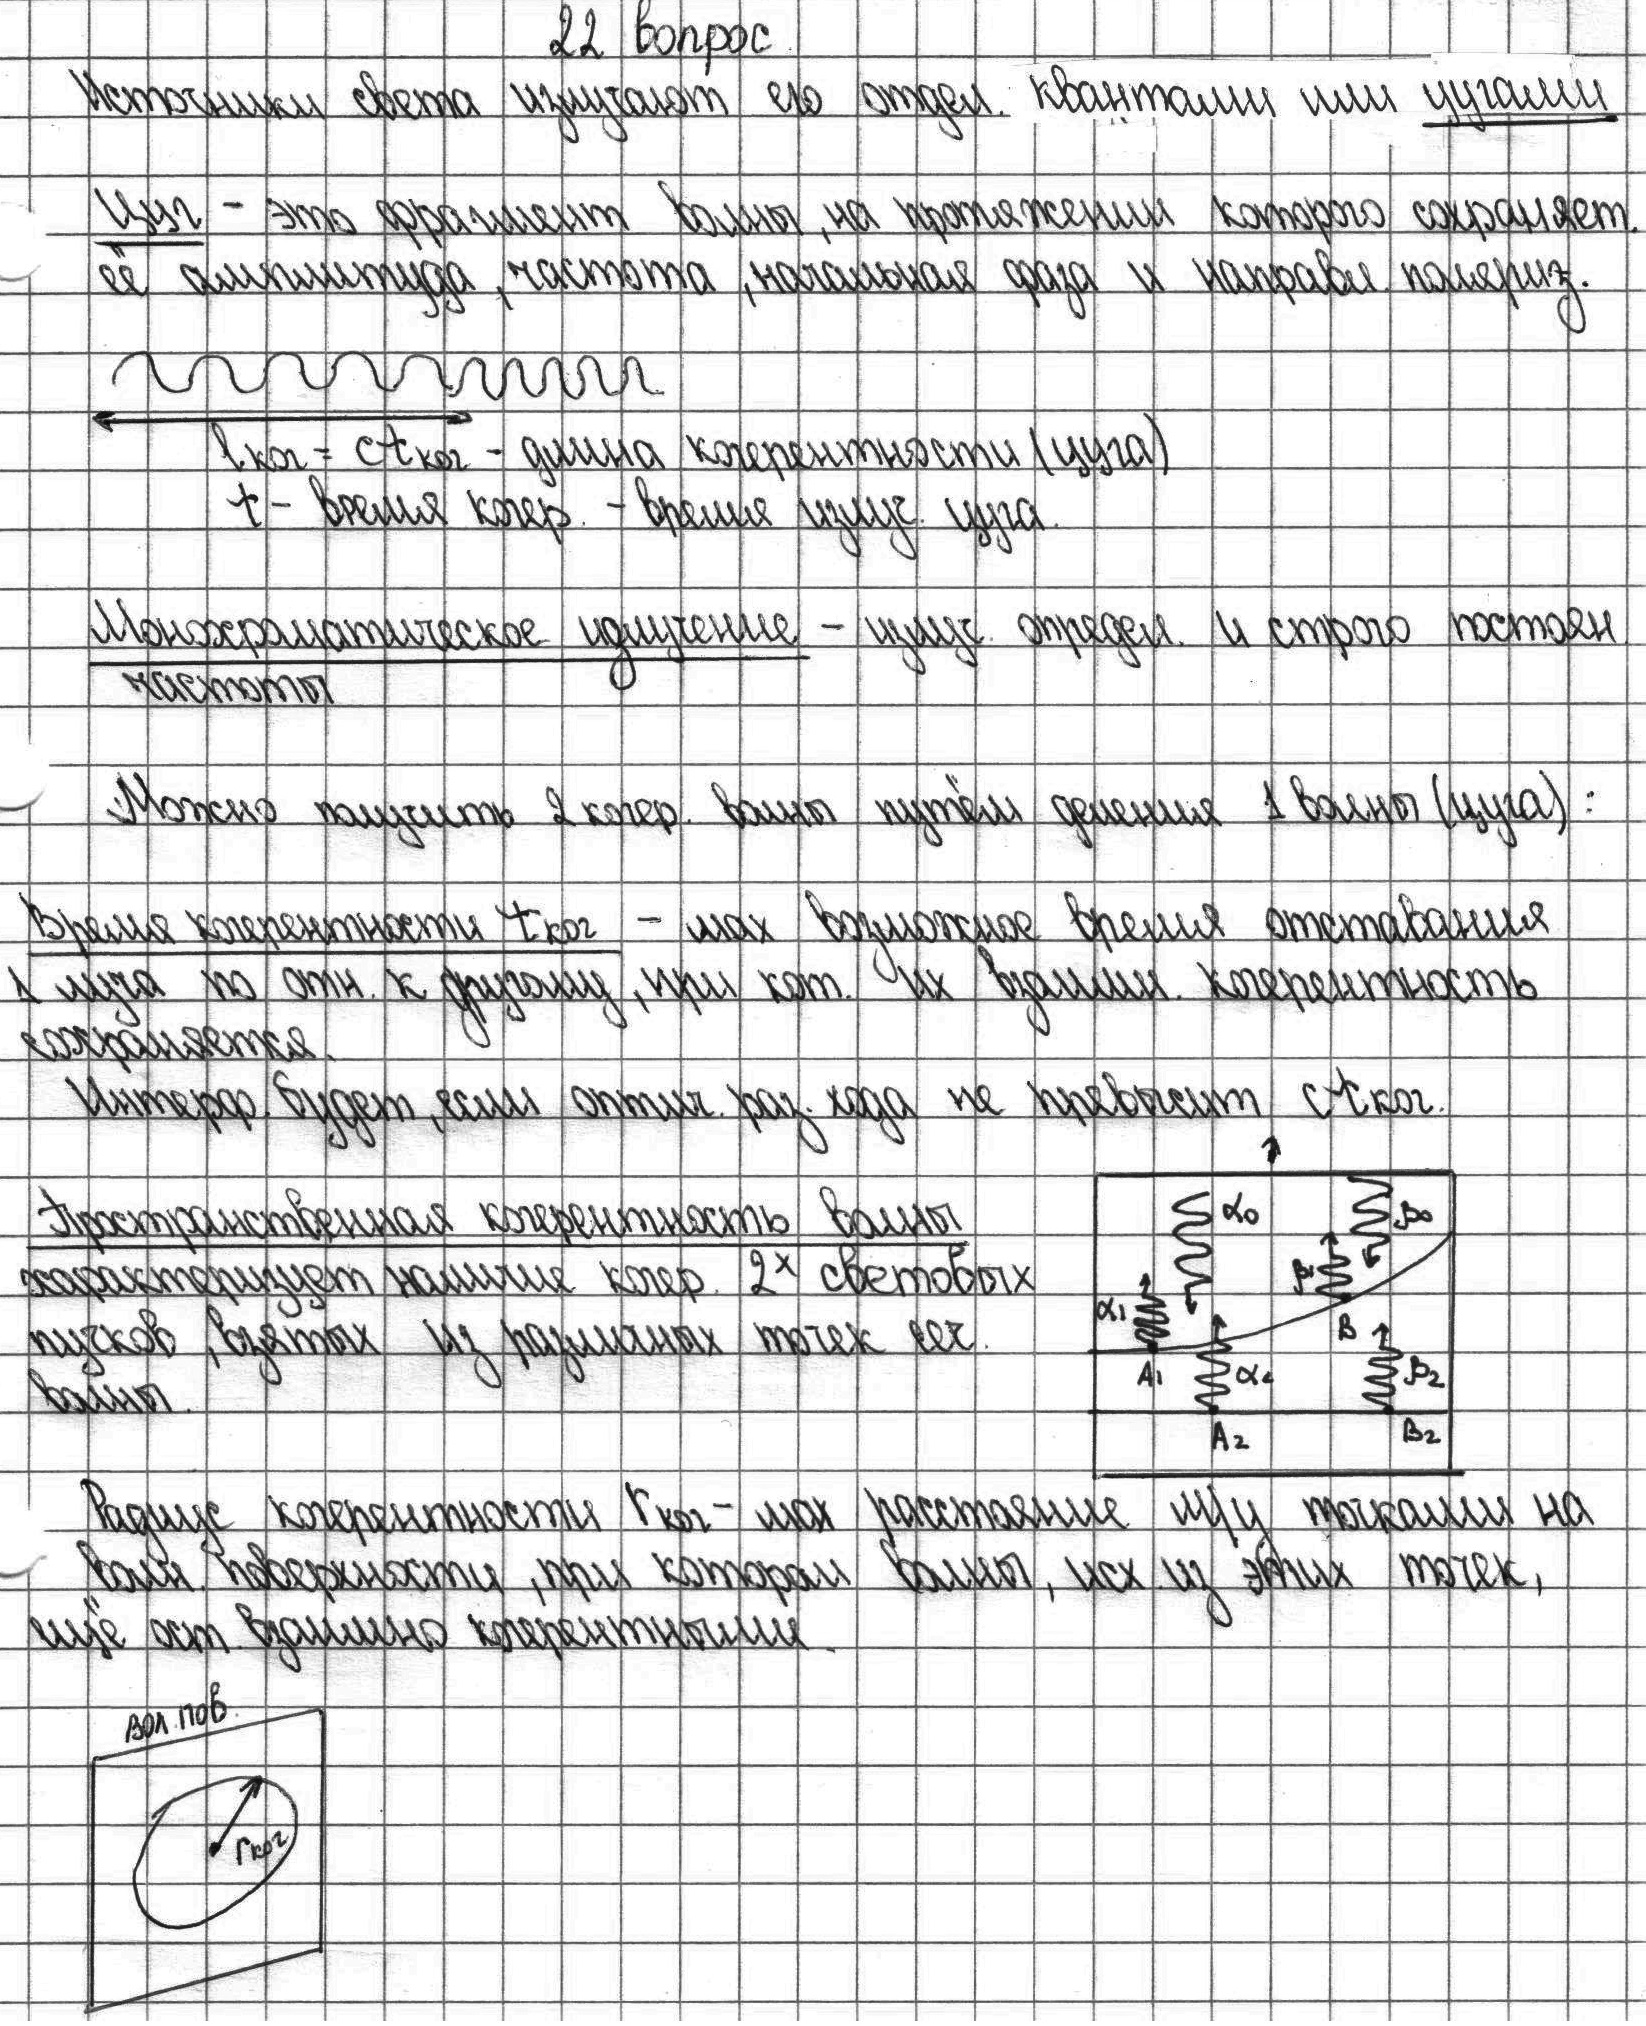 22 вопрос
Источники света излучают его отдел. квантами или цугами
Цуг – это фрагмент волны, на протяжении которого сохраняет.
её амплитуда, частота, начальная фаза и направл. поляриз.
lког = ctког – длина когерентности (цуга)
t – время когер. – время излуч. цуга.
Монохроматическое излучение – излуч. определ. и строго постоян
частоты
Можно получить 2 когер. волны путём деления 1 волны (цуга):
Время когерентности tког – max возможное время отставания
1 луча по отн. к другому, при кот. их взаимн. когерентность
сохраняется.
Интерф. будет, если оптич. раз. хода не превысит ctког.
Пространственная когерентность волны
характеризует наличие когер. 2х световых
пучков, взятых из различных точек сеч.
волны.
α0 β0
α1 β1
B
A1 α2 β2
A2 B2
Радиус когерентности rког – max расстояние м/у точками на
волн. поверхности, при котором волны, исх. из этих точек,
ещё ост. взаимно когерентными.
вол. пов.
rког